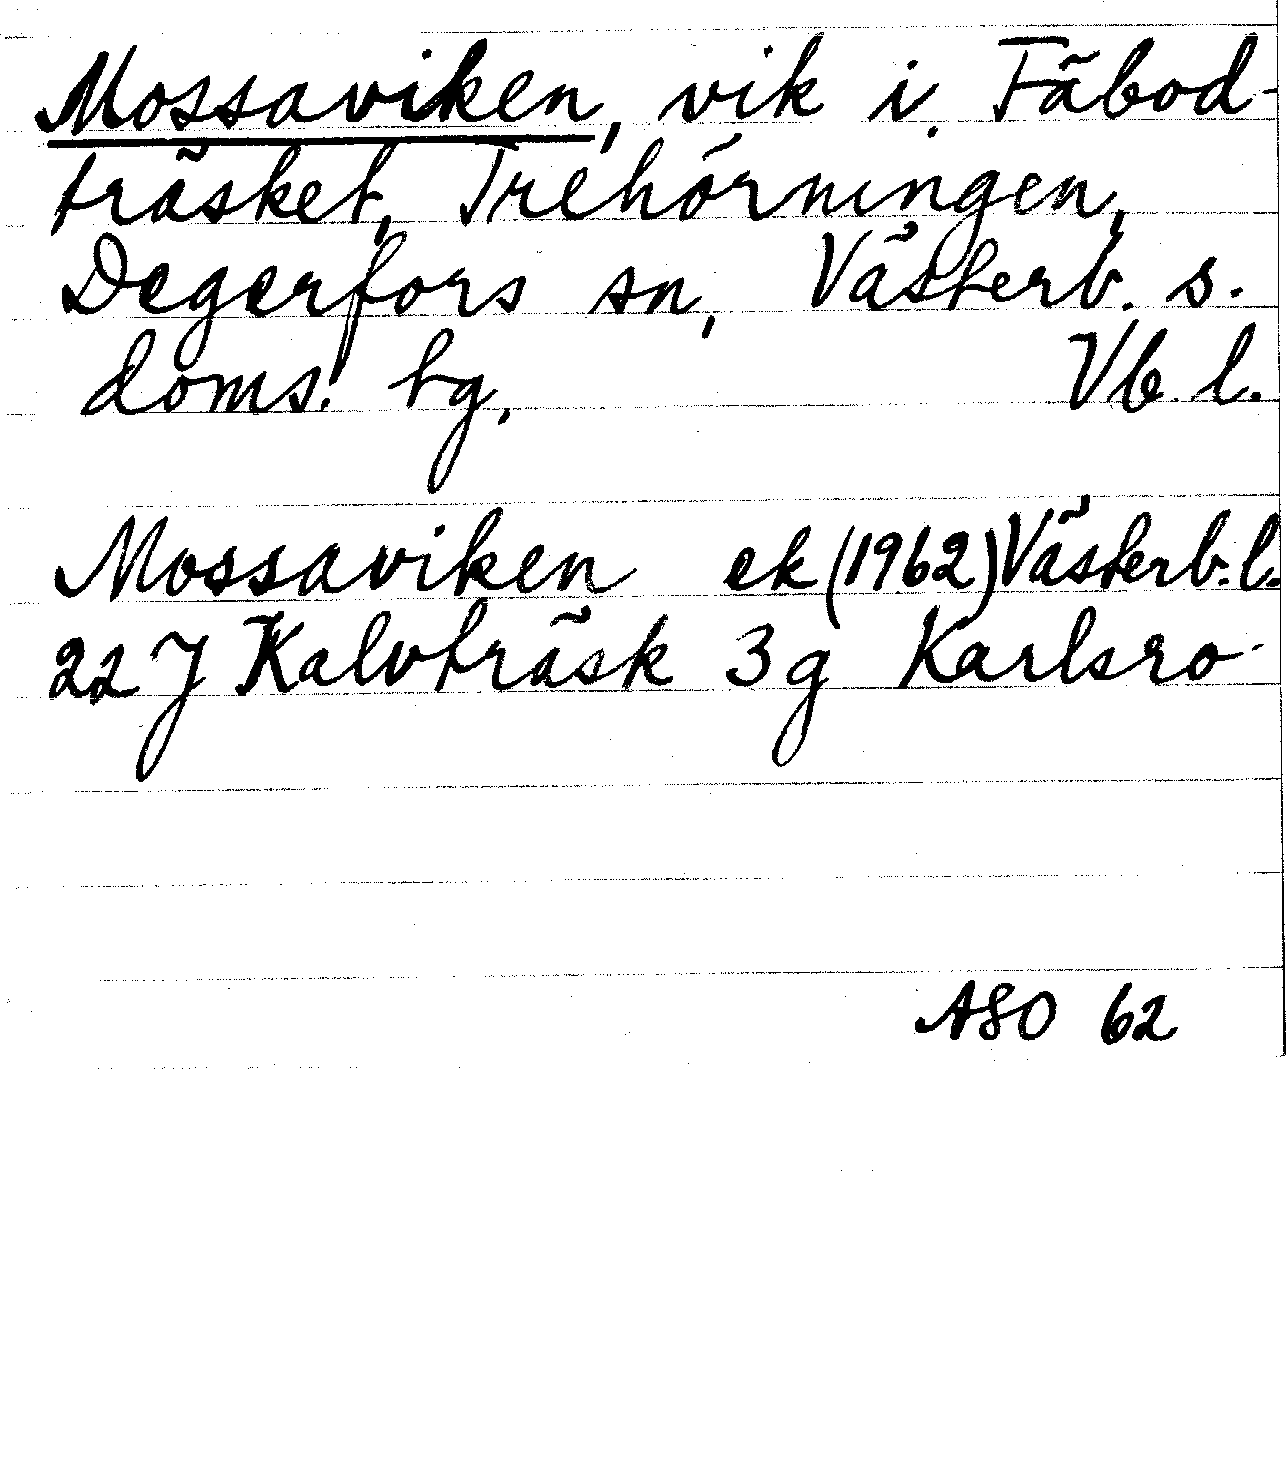 Mossaviken, vik i Fäbod-
träsket, Trehörningen,
Degerfors sn, Västerb. s.
doms. tg, Vb. l.
Mossaviken ek (1962) Västerb. l.
22 J Kalvträsk 3g Karlsro
ASO 62